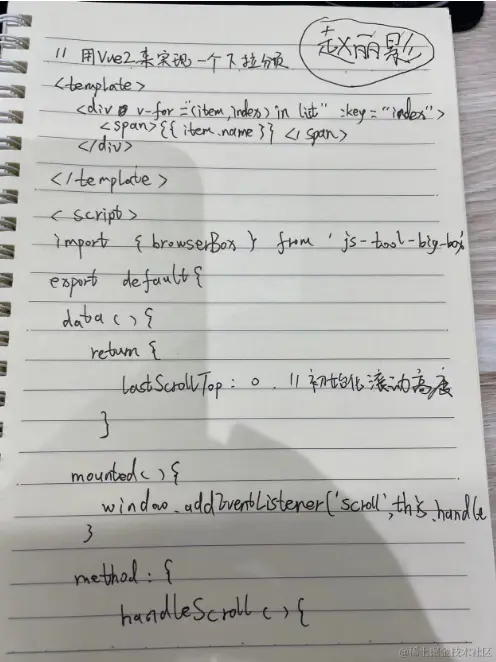 赵丽影
// 用Vue2来实现一个下拉分页
<template>
<div v-for="(item,index) in list" :key="index">
<span>{{ item.name }} </span>
</div>
</template>
<script>
import {browserBox} from 'js-tool-big-box'
export default{
data(){
return {
lastScrollTop: 0. // 初始化滚动高度
}
mounted(){
window.addEventListener('scroll',this.handle
}
method:{
handleScroll(){
@稀土掘金技术社区